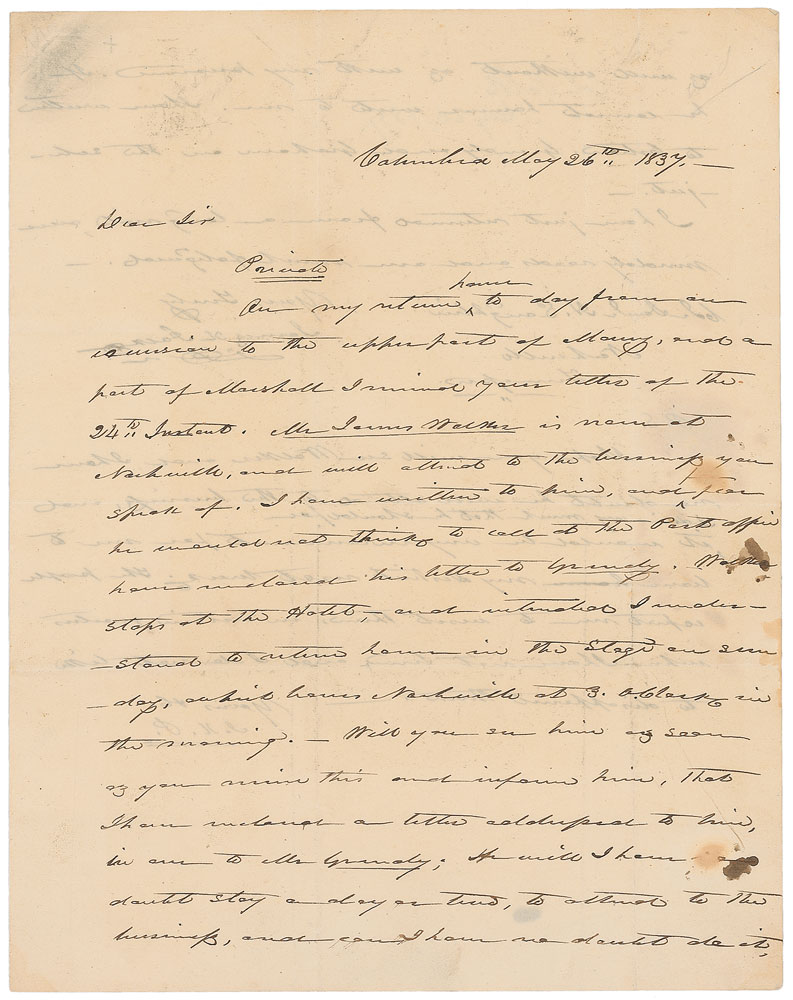 Columbia May 26th 1837. —
Dear Sir
Private
home
On my return ^ to day from an
excursion to the upper part of Maury, and a
part of Marshall I received your letter of the
24th Instant. Mr James Walker is now at
Nashville, and will attend to the business you
speak of. I have written to him, and ^ fear
he would not think to call at the Post office
have enclosed his letter to Grundy. Walker
stops at the Hotel, — and intended I under-
-stand to return home in the Stage on Sun
-day, which leaves Nashville at 3. OClock in
the morning. — Will you see him as soon
as you receive this and inform him, that
I have enclosed a letter addressed to him,
in one to Mr Grundy; He will I have no
doubt stay a day or two, to attend to the
business, and can I have no doubt do it,